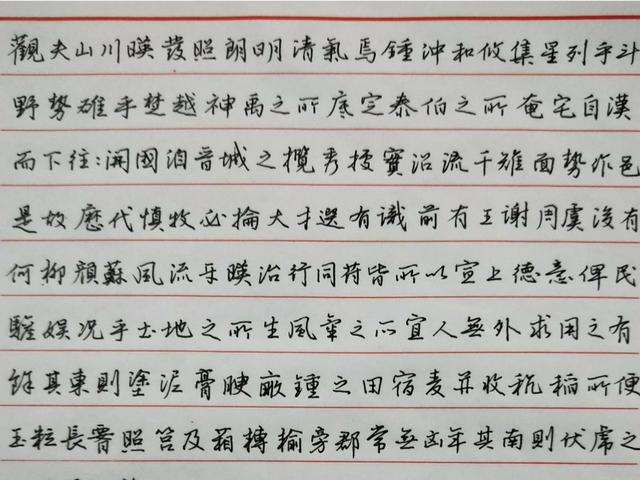 觀夫山川暎發照朗日月清氣焉鍾沖和攸集星列乎斗
野勢雄乎楚越神禹之所底定泰伯之所奄宅自漢
而下往往開國洎晉城之攬秀據實沿流千雉面勢作邑
是故歷代慎牧必掄大才選有識前有王謝周虞後有
何柳顏蘇風流牙暎治行同符皆所以宣上德意俾民
驩娛况乎土地之所生風氣之所宜人無外求用之有
餘其東則塗泥膏腴畝鍾之田宿麥并收秔稻所便
玉粒長霄照筥及箱轉輸旁郡常無凶年其南則伏虎之